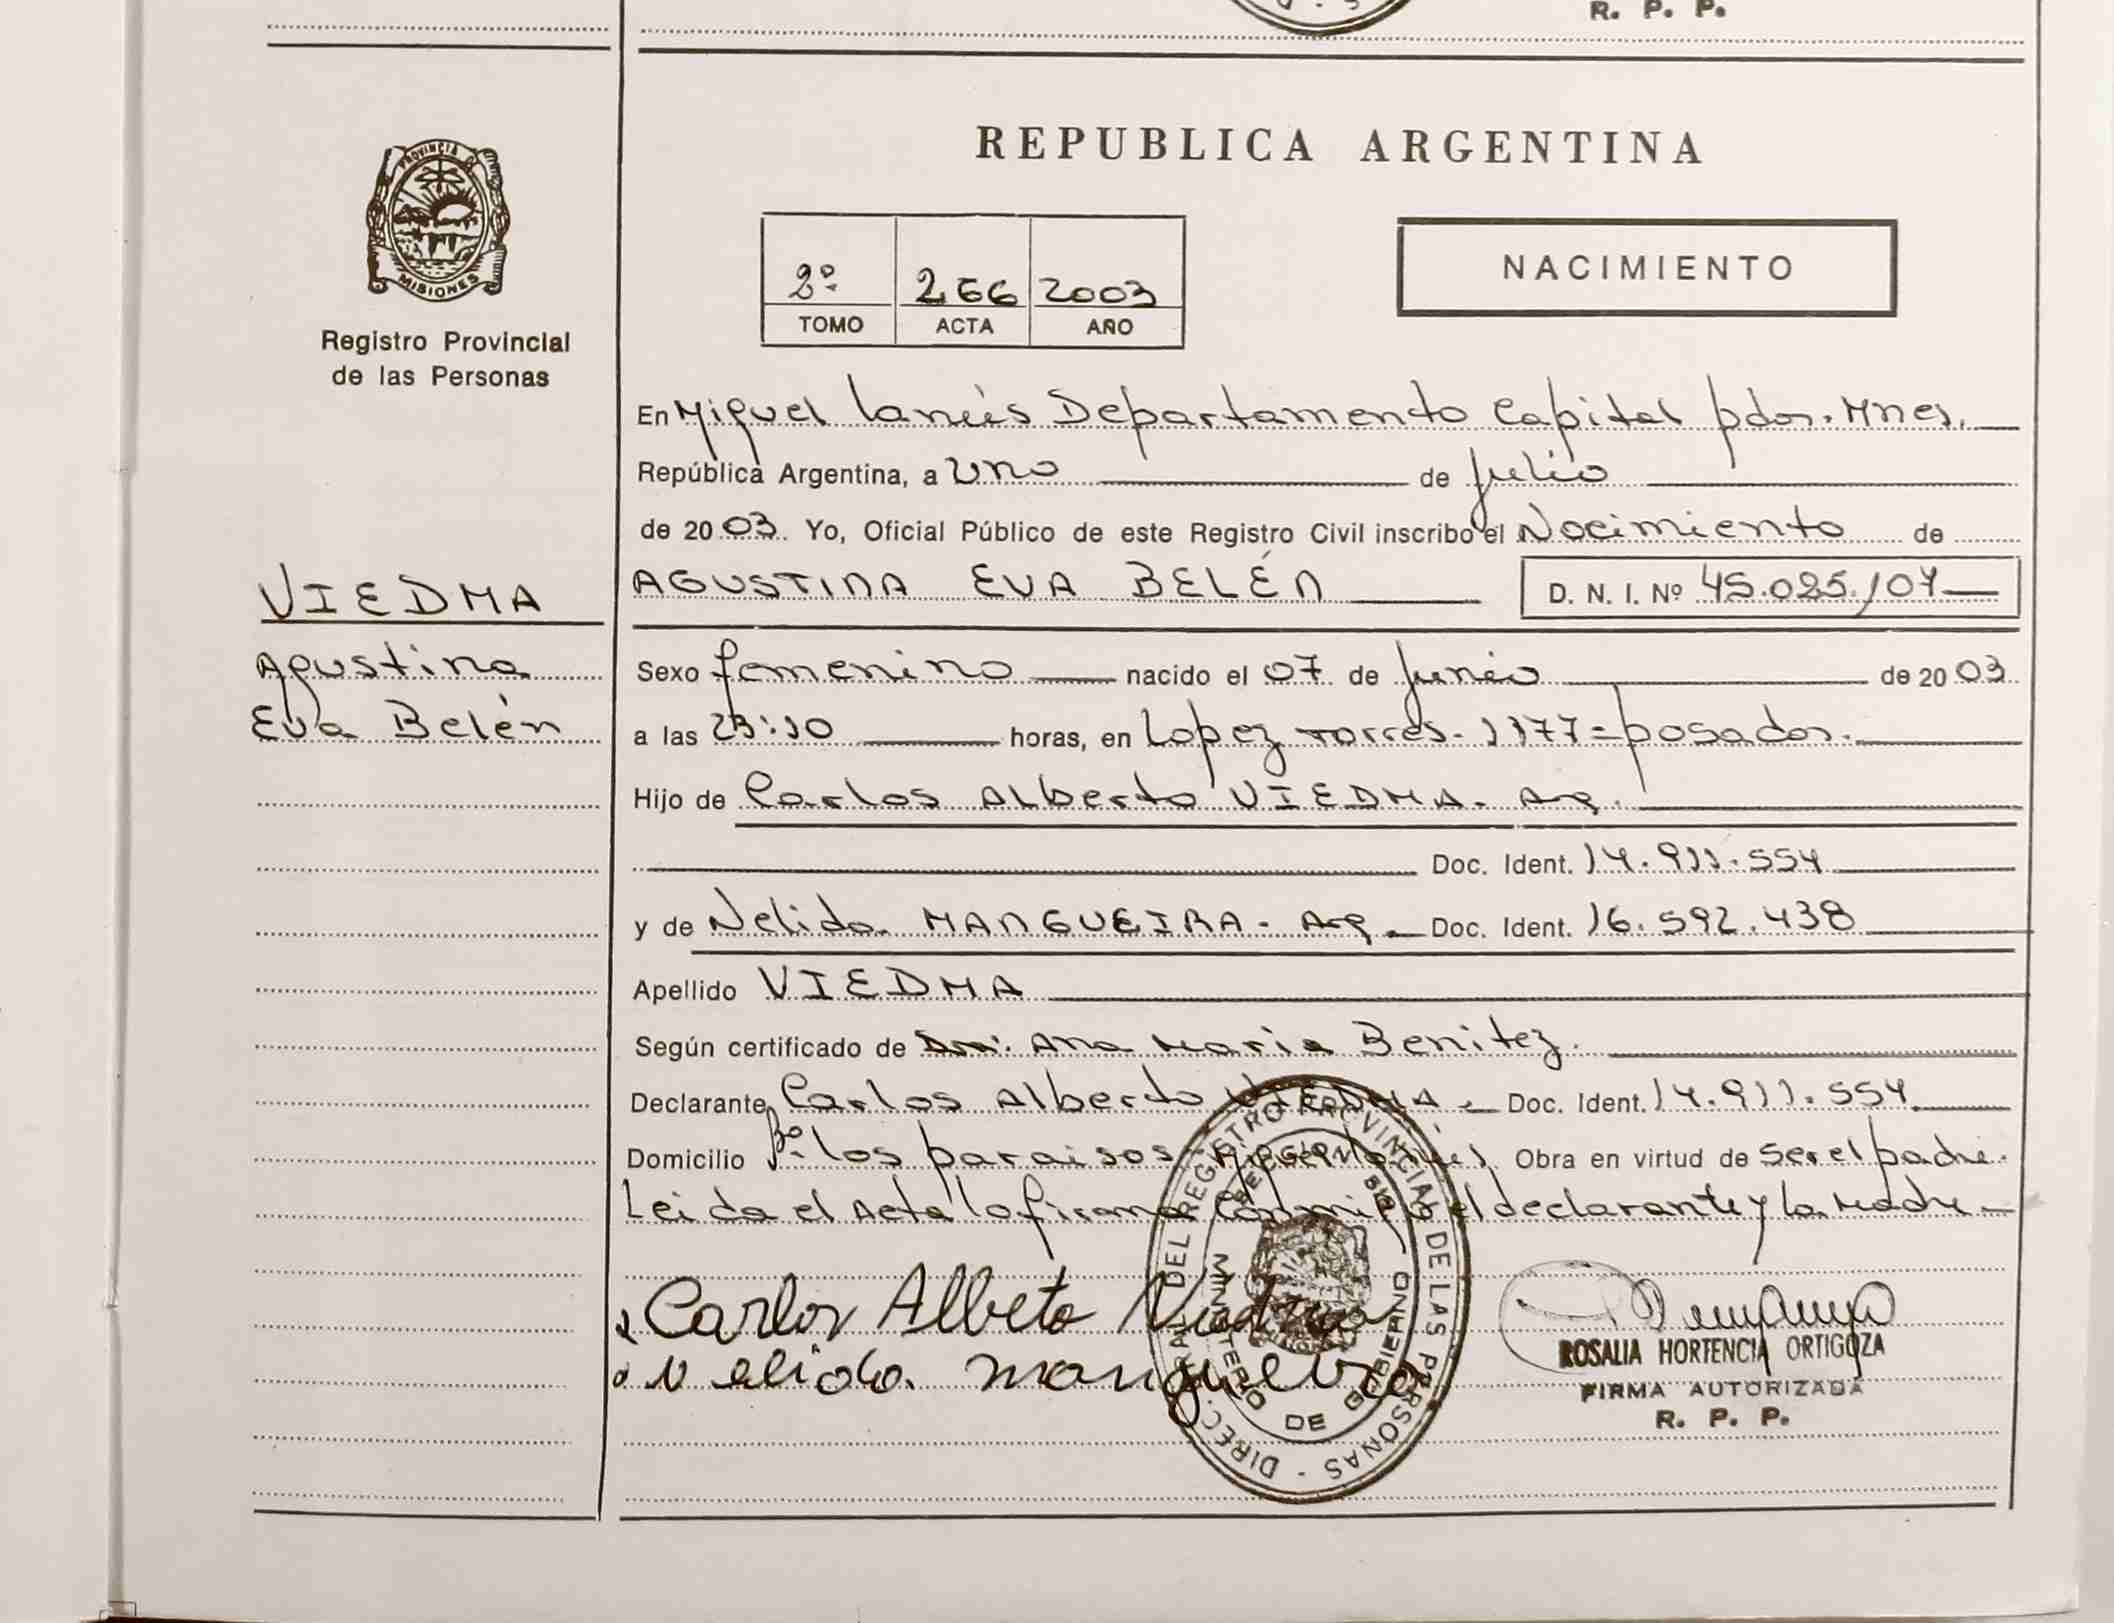 R. P. P.
PROVINCIA D
MISIONES
Registro Provincial
de las Personas
REPUBLICA ARGENTINA
2º 266 2003
TOMO ACTA AÑO
NACIMIENTO
En Miguel Lanús Departamento Capital pdas. Mnes.
República Argentina, a uno de julio
de 2003. Yo, Oficial Público de este Registro Civil inscribo el Nacimiento de
VIEDMA
AGUSTINA EVA BELÉN D. N. I. Nº 45.025.107
Agustina
Eva Belén
Sexo femenino nacido el 07 de Junio de 2003
a las 23:10 horas, en Lopez Torres - 1177 = posadas.
Hijo de Carlos Alberto VIEDMA - Arg.
Doc. Ident. 14.911.554
y de Nelida MANGUEIRA - Arg. Doc. Ident. 16.592.438
Apellido VIEDMA
Según certificado de Dra. Ana Maria Benitez.
Declarante Carlos Alberto VIEDMA. Doc. Ident. 14.911.554
Domicilio Bº los paraisos Miguel Lanús. Obra en virtud de ser el padre.
Leida el Acta la firma conmigo el declarante y la madre
Carlos Alberto Viedma
Nelida mangueira
DIREC. GRAL. DEL REGISTRO PROVINCIAL DE LAS PERSONAS
MINISTERIO DE GOBIERNO
ROSALIA HORTENCIA ORTIGOZA
FIRMA AUTORIZADA
R. P. P.